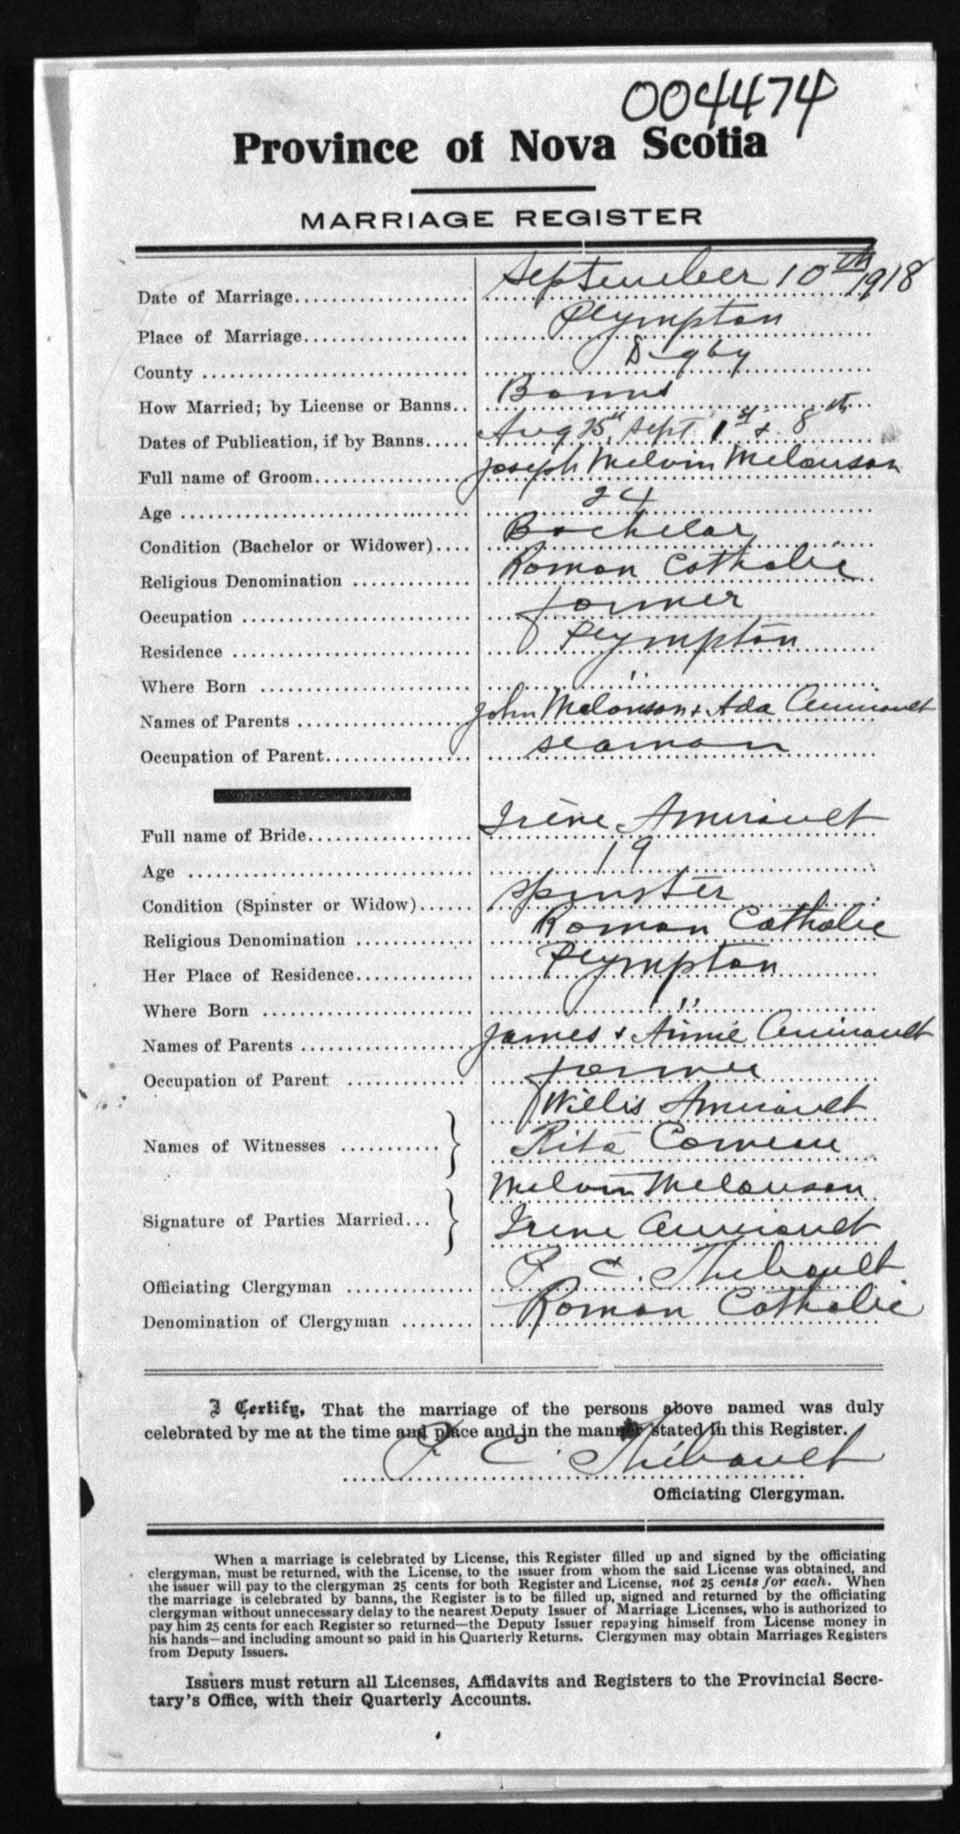 004474
Province of Nova Scotia
MARRIAGE REGISTER
Date of Marriage.................... September 10th 1918
Place of Marriage.................. Plympton
County ............................ Digby
How Married; by License or Banns.. Banns
Dates of Publication, if by Banns..... Aug 25th, Sept 1st & 8th
Full name of Groom.................. Joseph Melvin Melanson
Age ................................ 24
Condition (Bachelor or Widower).... Bachelor
Religious Denomination .............. Roman Catholic
Occupation ......................... farmer
Residence .......................... Plympton
Where Born ......................... "
Names of Parents ................... John Melanson & Ada Amirault
Occupation of Parent................ seaman
Full name of Bride.................. Irène Amirault
Age ................................ 19
Condition (Spinster or Widow)...... Spinster
Religious Denomination .............. Roman Catholic
Her Place of Residence.............. Plympton
Where Born ......................... "
Names of Parents ................... James & Annie Amirault
Occupation of Parent ............... farmer
Willis Amirault
Names of Witnesses ........... } Rita Comeau
Melvin Melanson
Signature of Parties Married... } Irene Amirault
Officiating Clergyman .............. P C. Thibault
Denomination of Clergyman ........ Roman Catholic
I Certify, That the marriage of the persons above named was duly
celebrated by me at the time and place and in the manner stated in this Register.
P C. Thibault
Officiating Clergyman.
When a marriage is celebrated by License, this Register filled up and signed by the officiating
clergyman, must be returned, with the License, to the issuer from whom the said License was obtained, and
the issuer will pay to the clergyman 25 cents for both Register and License, not 25 cents for each. When
the marriage is celebrated by banns, the Register is to be filled up, signed and returned by the officiating
clergyman without unnecessary delay to the nearest Deputy Issuer of Marriage Licenses, who is authorized to
pay him 25 cents for each Register so returned—the Deputy Issuer repaying himself from License money in
his hands—and including amount so paid in his Quarterly Returns. Clergymen may obtain Marriages Registers
from Deputy Issuers.
Issuers must return all Licenses, Affidavits and Registers to the Provincial Secre-
tary's Office, with their Quarterly Accounts.